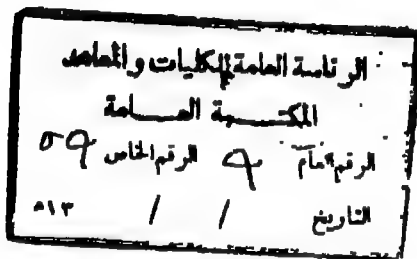 الرئاسة العامة للكليات والمعاهد
المكتبة العامة
الرقم العام ٩ الرقم الخاص ٥٩
التاريخ / / ١٣هـ